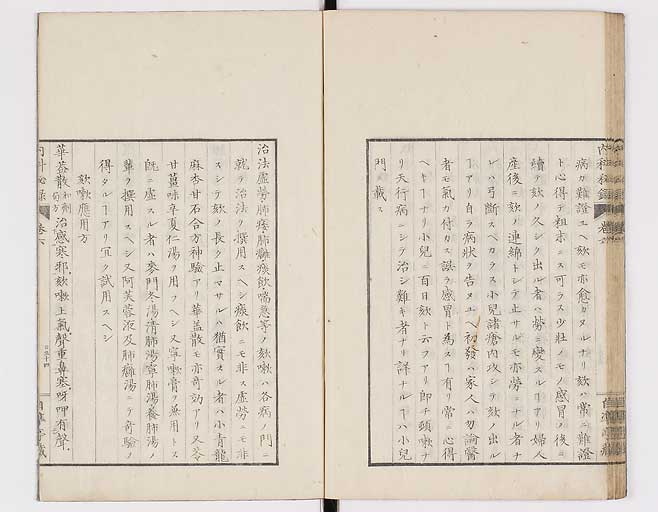 病ノ難證ユヘ欬モ亦愈カタルナリ欬ハ常ニ難證
ト心得テ粗末ニス可ラス少壯ノモノ感冒ノ後ニ
續テ欬ノ久シク出ル者ハ勞ニ變スルヿアリ婦人
産後ニ欬ノ連綿トシテ止サルモ亦勞ニナル者ナ
レハ弓斷スヘカラス小兒諸瘡内攻シテ欬ノ出ル
ヿアリ自ラ病狀ヲ告ヌユヘ初發ハ家人ハ勿論醫
者モ氣カ付カス誤テ感冒ト為スヿ有リ常ニ心得
ヘキヿナリ小兒ニ百日欬ト云フアリ即チ頓嗽ナ
リ天行病ニシテ治シ難キ者ナリ詳ナルヿハ小兒
門ニ載ス
治法虚勞肺痿肺癰痰飲喘急等ノ欬嗽ハ各病ノ門ニ
就テ治法ヲ撰用スヘシ痰飲ニモ非ス虚勞ニモ非
スシテ欬ノ長ク止マサルハ猶實スル者ハ小青龍
麻杏甘石合方神驗アリ華蓋散モ亦奇効アリ又苓
甘薑味辛夏仁湯ヲ用フヘシ又寧嗽膏ヲ兼用トス
既ニ虚スル者ハ麥門冬湯清肺湯寧肺湯養肺湯ノ
輩ヲ撰用スヘシ又阿芙蓉液及肺癰湯ニテ奇驗ノ
得タルヿアリ宜ク試用スヘシ
欬嗽應用方
華蓋散 和劑局方 治感寒邪欬嗽上氣聲重鼻塞呀呷有聲
内科秘録 卷六